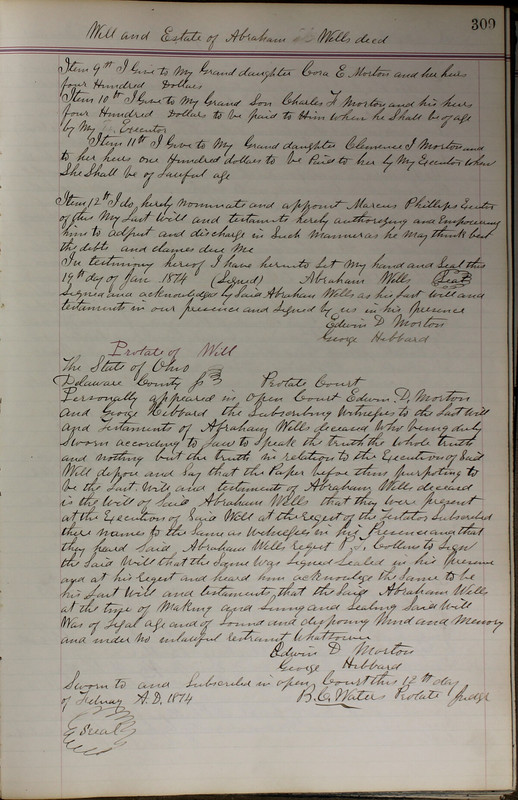 309
Will and Estate of Abraham Wells decd
Item 9th I Give to My Grand daughter Cora E. Morton and her heirs
four Hundred Dollars
Item 10th I Give to My Grand Son Charles F Morton and his heirs
four Hundred Dollars to be paid to Him when he Shall be of age
by My Executor
Item 11th I Give to My Grand daughter Clemence I Morton and
to her heirs one Hundred dollars to be Paid to her by My Executor when
She Shall be of Lawful age
Item 12th I do, hereby Nominate and appoint Marcus Phillips Exctor
of this My Last Will and testamts hereby authorizing and Empowering
him to adjust and discharge in Such Manner as he May think best
the debts and clames due Me
In testimony hereof I have hereunto Set My hand and Seal this
19th day of Jan 1874 (Signed) Abraham Wells Seal
Signed and acknowledged by Said Abraham Wells as his Last Will and
testaments in our presence and Signed by us in his Presence
Edwin D Morton
George Hibbard
Probate of Will
The State of Ohio
Delaware County Ss Probate Court
Personally appeared in open Court Edwin D, Morton
and George Hibbard the Subscribing Witnesses to the Last Will
and Testaments of Abraham Wells deceased Who being duly
Sworn according to Law to Speak the truth the whole truth
and nothing but the truth in relation to the Execution of Said
Will depose and Say that the Paper before them purpoting to
be the Last Will and testaments of Abraham Wells deceased
is the Will of Said Abraham Wells that they were present
at the Execution of Said Will at the reqest of the testator Subscribed
there names to the Same as Witnesses in his Presence and that
they heard Said Abraham Wells reqest to Sign
the Said Will that the Same Was Signed Sealed in his presence
and at his reqest and heard him acknowledge the Same to be
his Last Will and testament, that the Said Abraham Wells
at the time of Making and and Sealing Said Will
Was of Legal age and of Sound and disposing Mind and Memory
and under no restraint Whatsoever
Edwin D Morton
George Hibbard
Sworn to and Subscribed in open Court this 12th day
of Febuay A.D, 1874 B. C. Waters Probate Judge
Seal